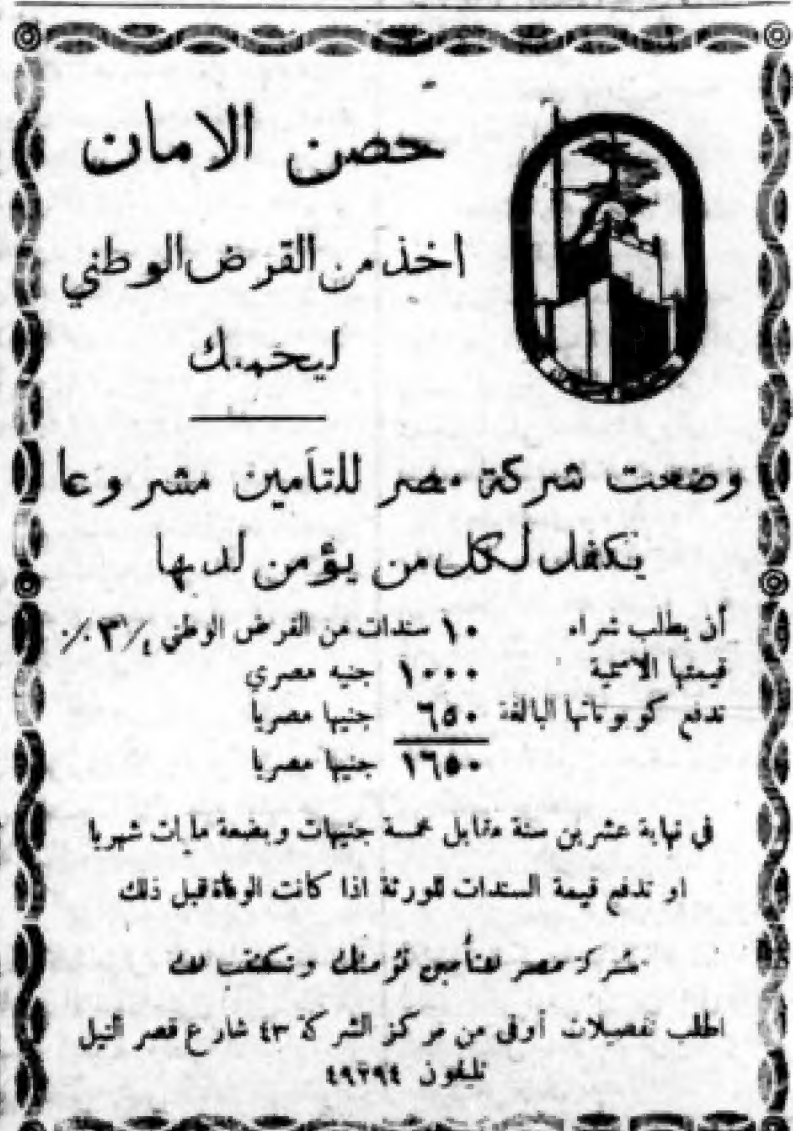 حصن الامان
اخذ من القرض الوطني
ليحميك
وضعت شركة مصر للتأمين مشروعا
يتكفل لكل من يؤمن لديها
أن يطلب شراء ١٠ سندات من القرض الوطني ٣١/٤ ٪
قيمتها الاسمية ١٠٠٠ جنيه مصري
تدفع كوبوناتها البالغة ٦٥٠ جنيها مصريا
١٦٥٠ جنيها مصريا
في نهاية عشرين سنة مقابل خمسة جنيهات وبضعة مليمات شهريا
او تدفع قيمة السندات للورثة اذا كانت الوفاة قبل ذلك
شركة مصر للتأمين تؤمنك وتكتتب لك
اطلب تفصيلات أوفى من مركز الشركة ٤٣ شارع قصر النيل
تليفون ٤٩٢٩٤